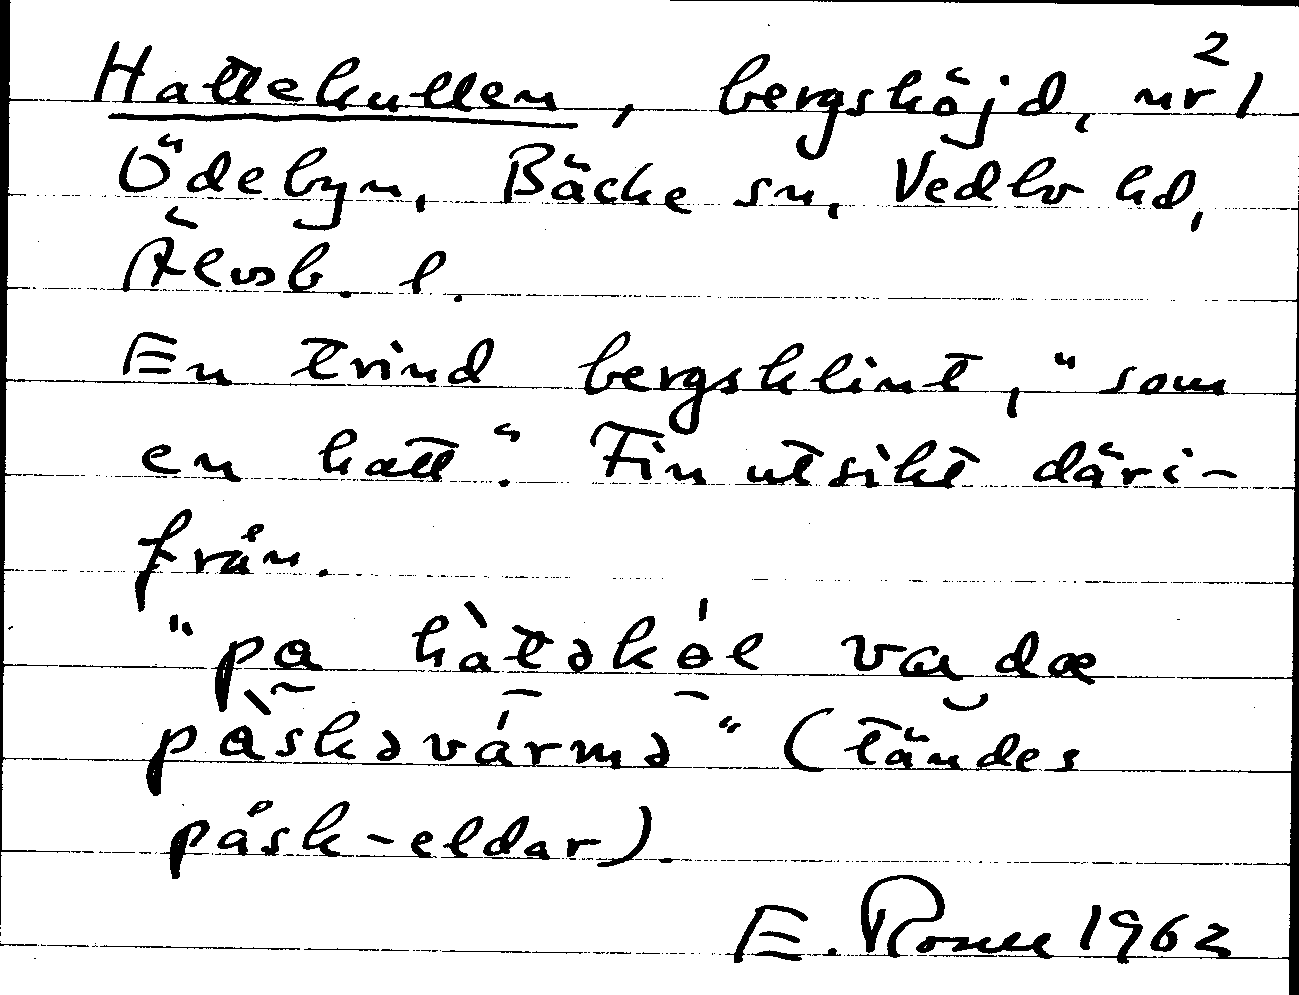 Hattekullen, bergshöjd, nr² 1
Ödebyn, Bäcke sn, Vedbo hd,
Älvsb. l.
En trind bergsklint, "som
en hatt". Fin utsikt däri-
från.
"pa hàtəkól va dæ
pàskəvármə" (tändes
påsk-eldar).
E. 1962